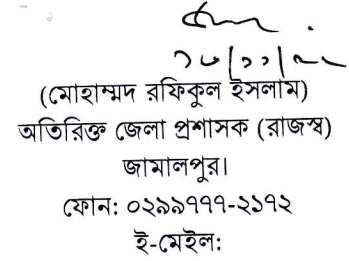 (মোহাম্মদ রফিকুল ইসলাম)
অতিরিক্ত জেলা প্রশাসক (রাজস্ব)
জামালপুর।
ফোন: ০২৯৯৭৭৭-২১৭২
ই-মেইল: